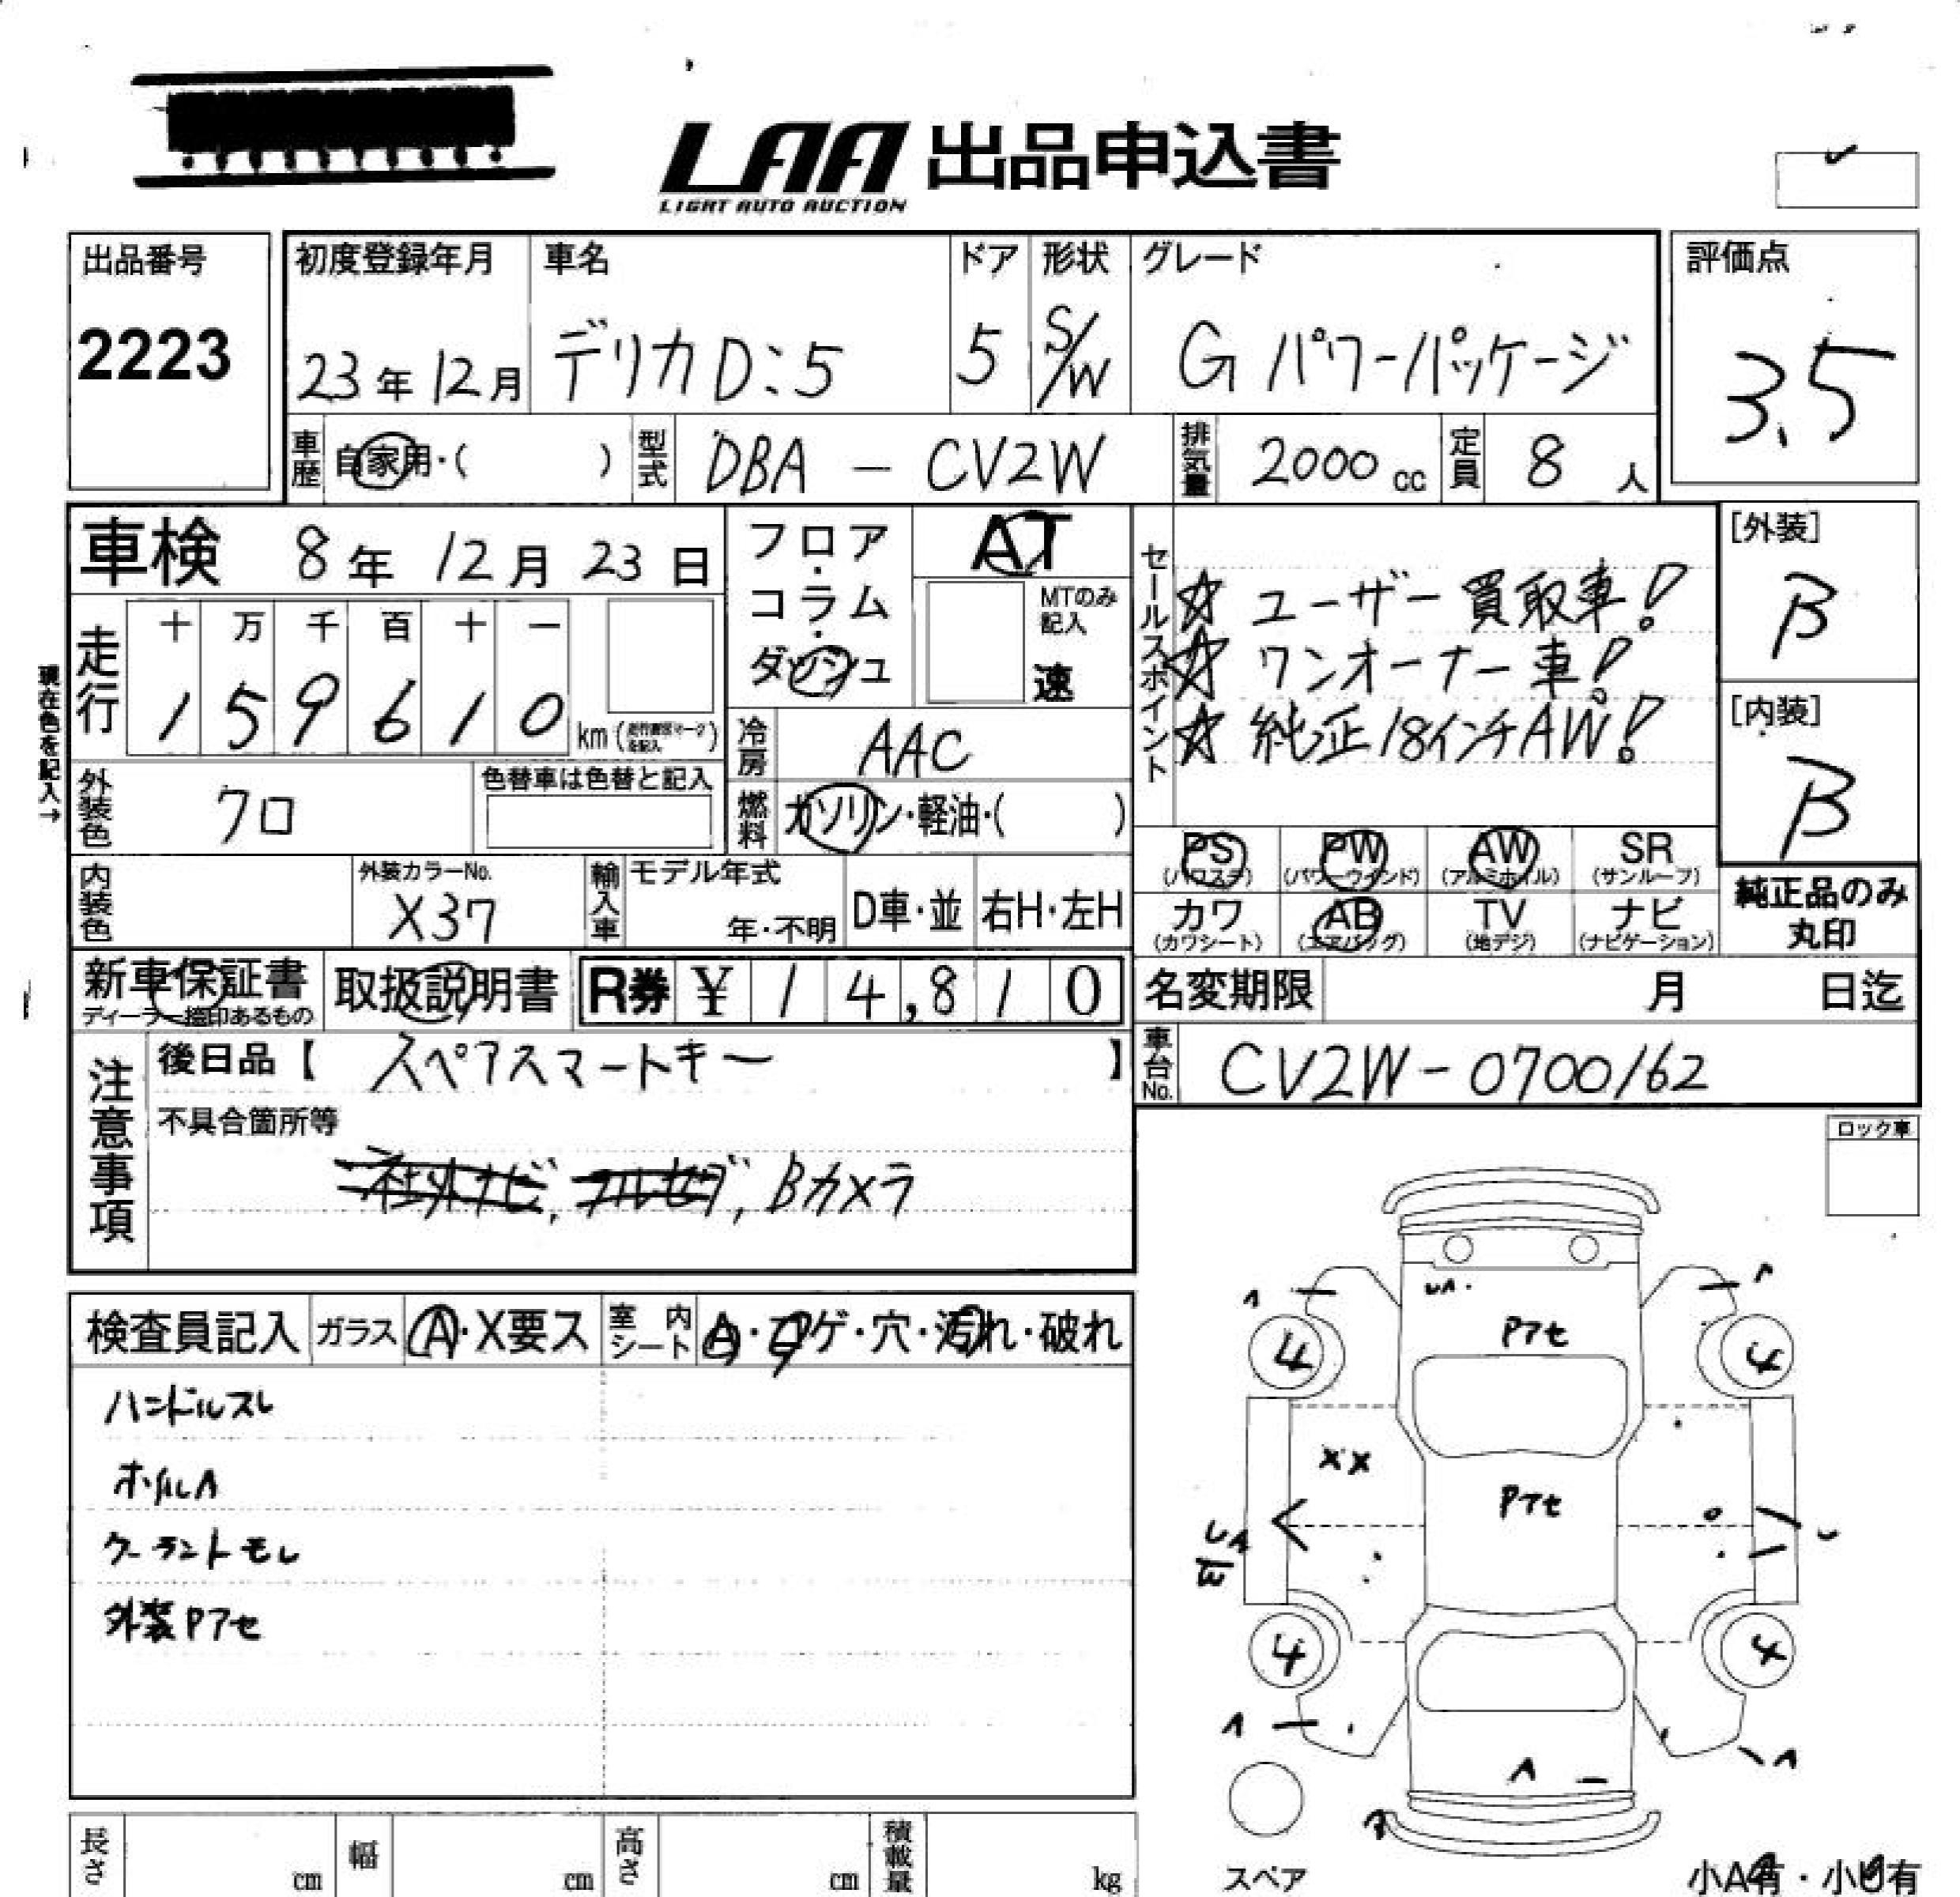 LAA 出品申込書
LIGHT AUTO AUCTION
出品番号
2223
初度登録年月
23年12月
車名
デリカD:5
ドア
5
形状
S/W
グレード
G パワーパッケージ
評価点
3.5
車歴
自家用・( )
型式
DBA - CV2W
排気量
2000 cc
定員
8 人
車検 8年 12月 23日
走行
十 万 千 百 十 一
1 5 9 6 1 0 km
現在色を記入→
フロア・コラム・ダッシュ
AT
MTのみ記入
速
冷房
AAC
燃料
ガソリン・軽油・( )
セールスポイント
☆ ユーザー買取車!
☆ ワンオーナー車!
☆ 純正18インチAW!
[外装]
B
[内装]
B
外装色
クロ
色替車は色替と記入
内装色
外装カラーNo.
X37
輸入車
モデル年式
年・不明
D車・並
右H・左H
PS
(パワステ)
PW
(パワーウインド)
AW
(アルミホイル)
SR
(サンルーフ)
カワ
(カワシート)
AB
(エアバッグ)
TV
(地デジ)
ナビ
(ナビゲーション)
純正品のみ
丸印
新車保証書
ディーラー捺印あるもの
取扱説明書
R券 ¥ 14,810
名変期限 月 日迄
車台No.
CV2W-0700162
注意事項
後日品【 スペアスマートキー 】
不具合箇所等
社外ナビ, フルセグ, Bカメラ
ロック車
検査員記入
ガラス A・X要ス
室内シート A・コゲ・穴・汚れ・破れ
ハンドルスレ
ホイルA
クーラントモレ
外装Pアセ
UA
Pアセ
A
4
4
XX
Pアセ
UA
U
4
4
A
A
A
スペア
小A有・小U有
長さ cm
幅 cm
高さ cm
積載量 kg